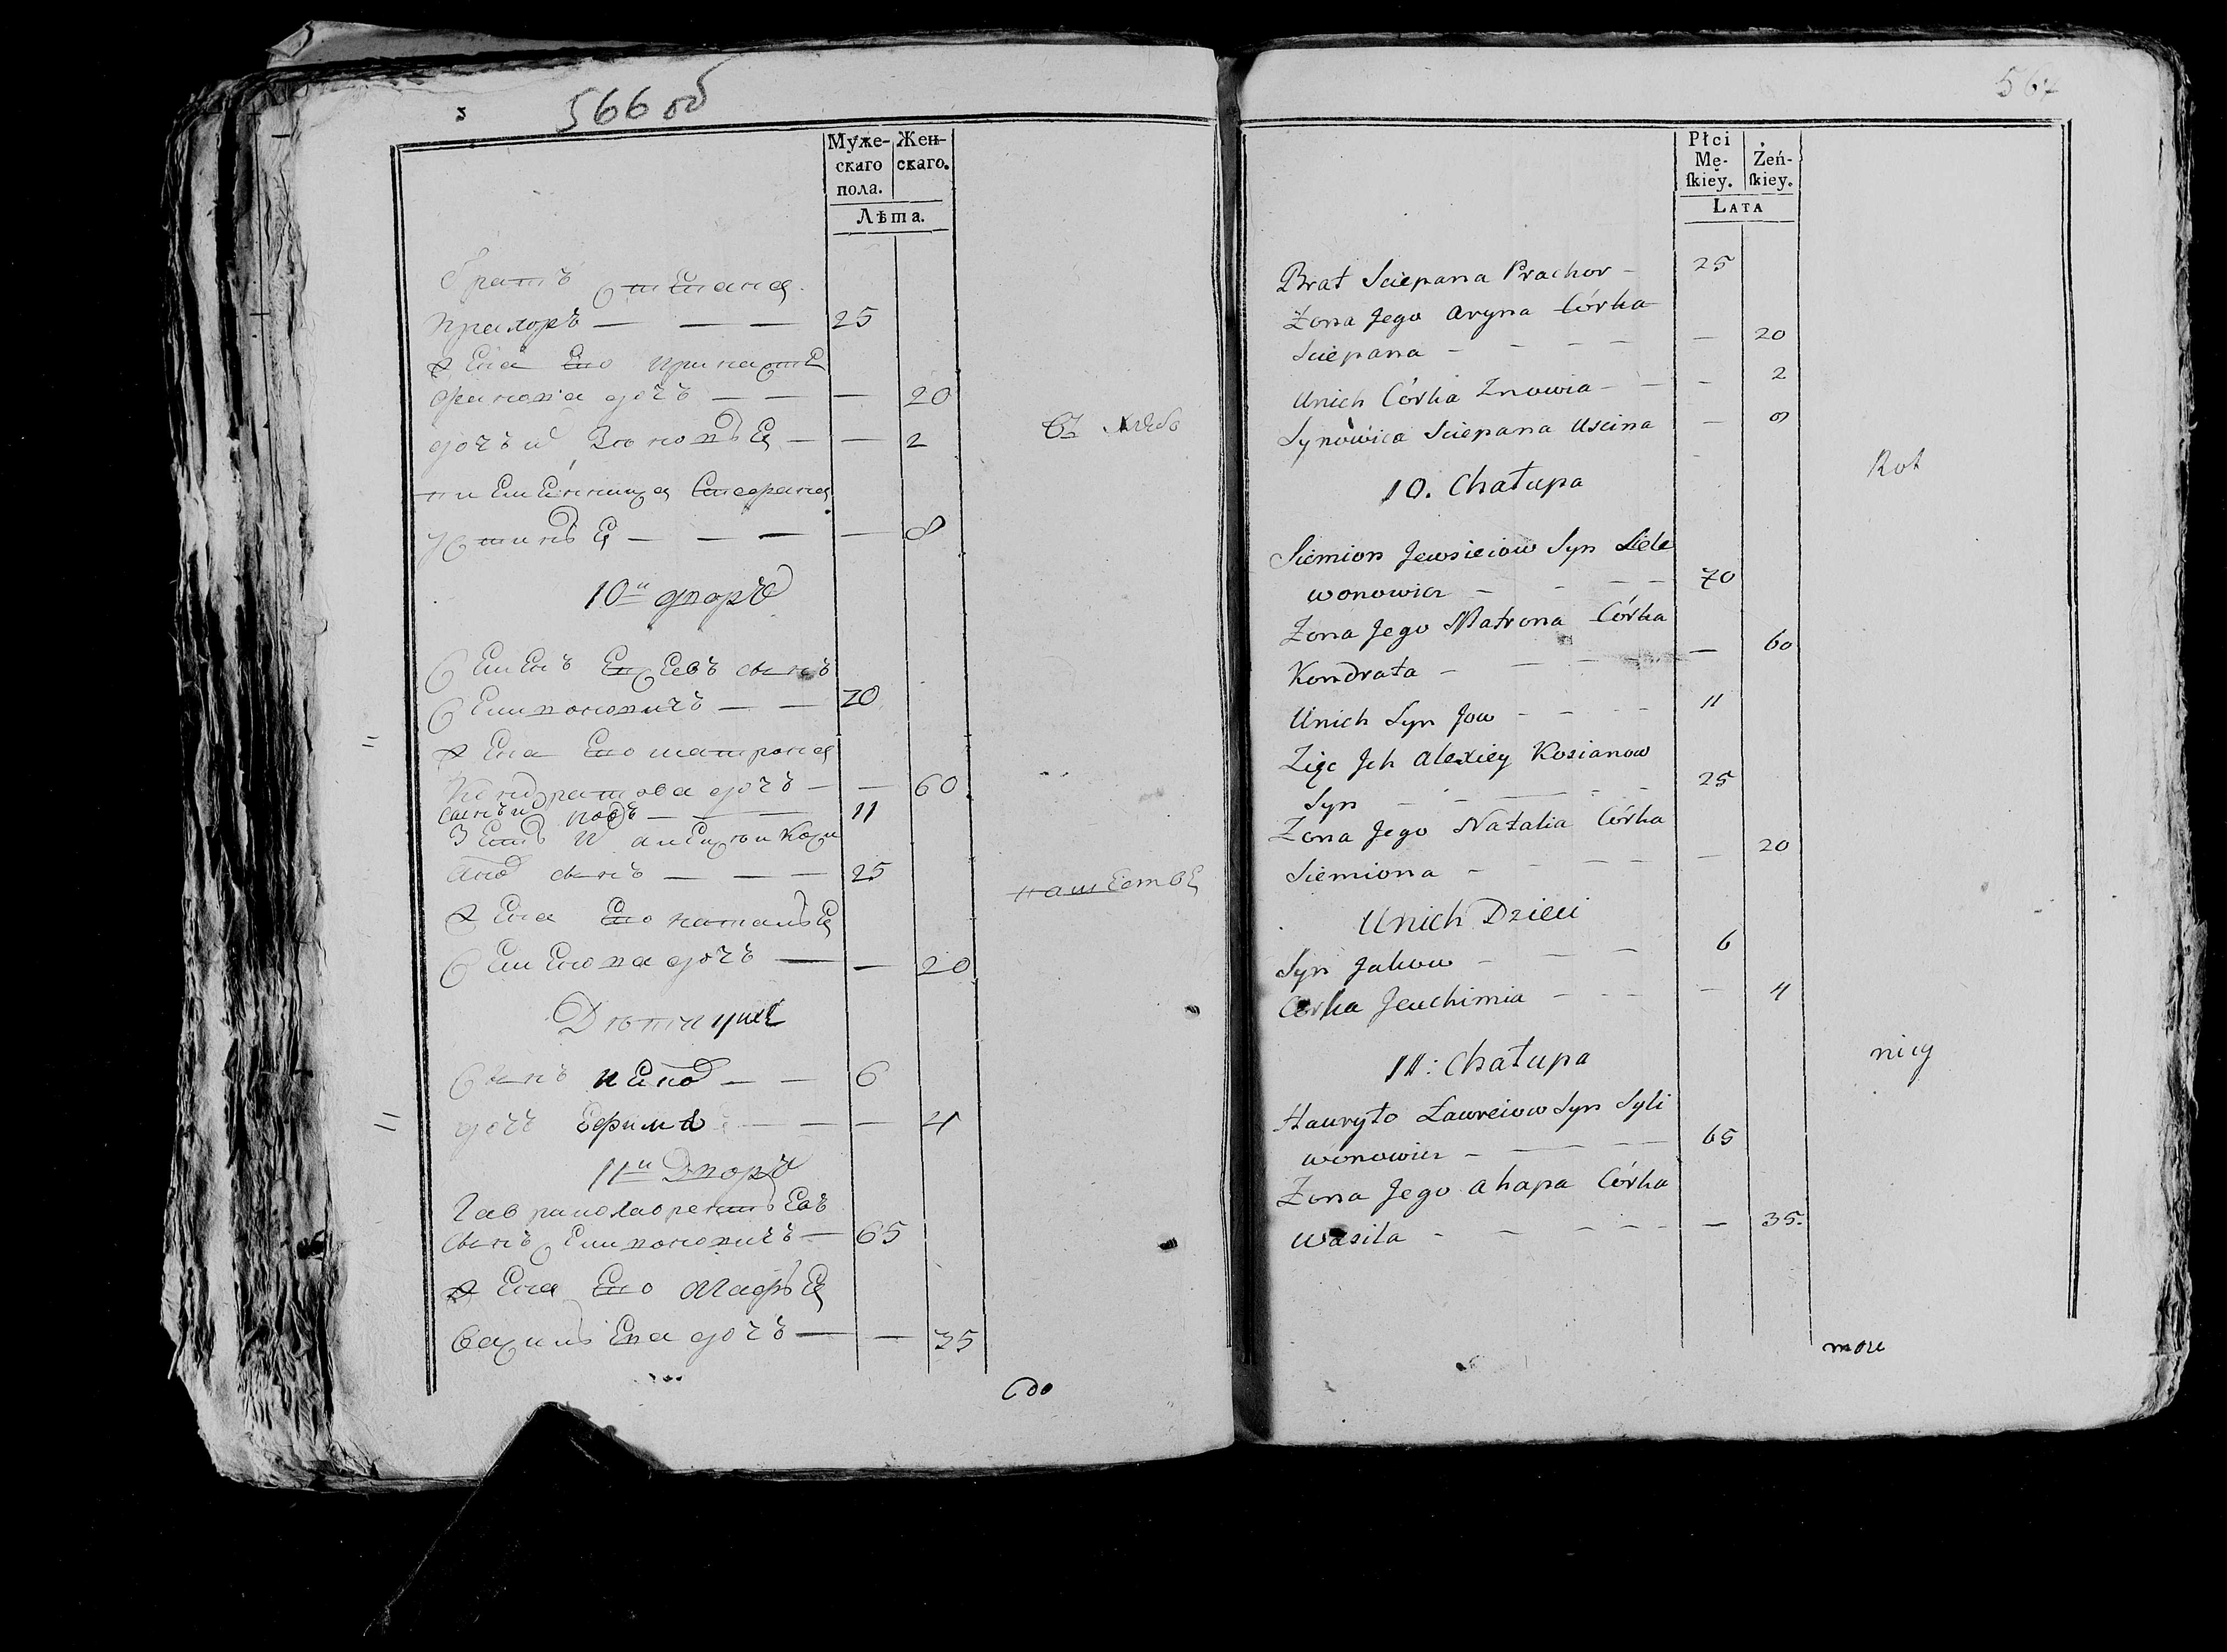 566 об
Муже- Жен-
скаго скаго.
пола.
Лѣта.
братъ Степана
Прахоръ — — — 25
жена Его
дочь — — — 20
дочь их Зеновья — — 2
племенница Степана
Устинья — — — — 8
10й дворъ
Семенъ Евсеевъ сынъ
Селивоновичъ — — 70
жена Его матрона
Кондратова дочь — — 60
сынъ их Иовъ — — 11
Зять их алексеи Коз
анов сынъ — — — 25
жена Его наталья
Семенова дочь — — 20
Дети их
Сынъ Яков — — 6
дочь Ефимья — — — 4
11й Дворъ
Гаврило Лаврентьевъ
сынъ Селивоновичъ — 65
жена Его Агафья
Василева дочь — — 35
въ хлебо
пашестве
Сдо
567
Płci
Mę- Żeń-
ſkiey. ſkiey.
LATA
Brat Sciepana Prachor — 25
Zona Jego Aryna Córka
Sciepana — — — — — 20
Unich Córka Znowia — — — 2
Synowica Sciepana Uscina — 8
10. Chałupa
Siemion Jewsieiow Syn Siele
wonowicz — — — — 70
Zona Jego Matrona Córka
Kondrata — — — — — 60
Unich Syn Jow — — — — 11
Zięc Jch Alexiey Kozianow
Syn — — — — — 25
Zona Jego Natalia Córka
Siemiona — — — — — 20
Unich Dzieci
Syn Jakow — — — 6
Córka Jeuchimia — — — — 4
11: Chałupa
Hauryło Ławreiow Syn Syli
wonowicz — — — — 65
Zona Jego Ahapa Córka
Wasila — — — — — — 35.
Rot
nicy
moze